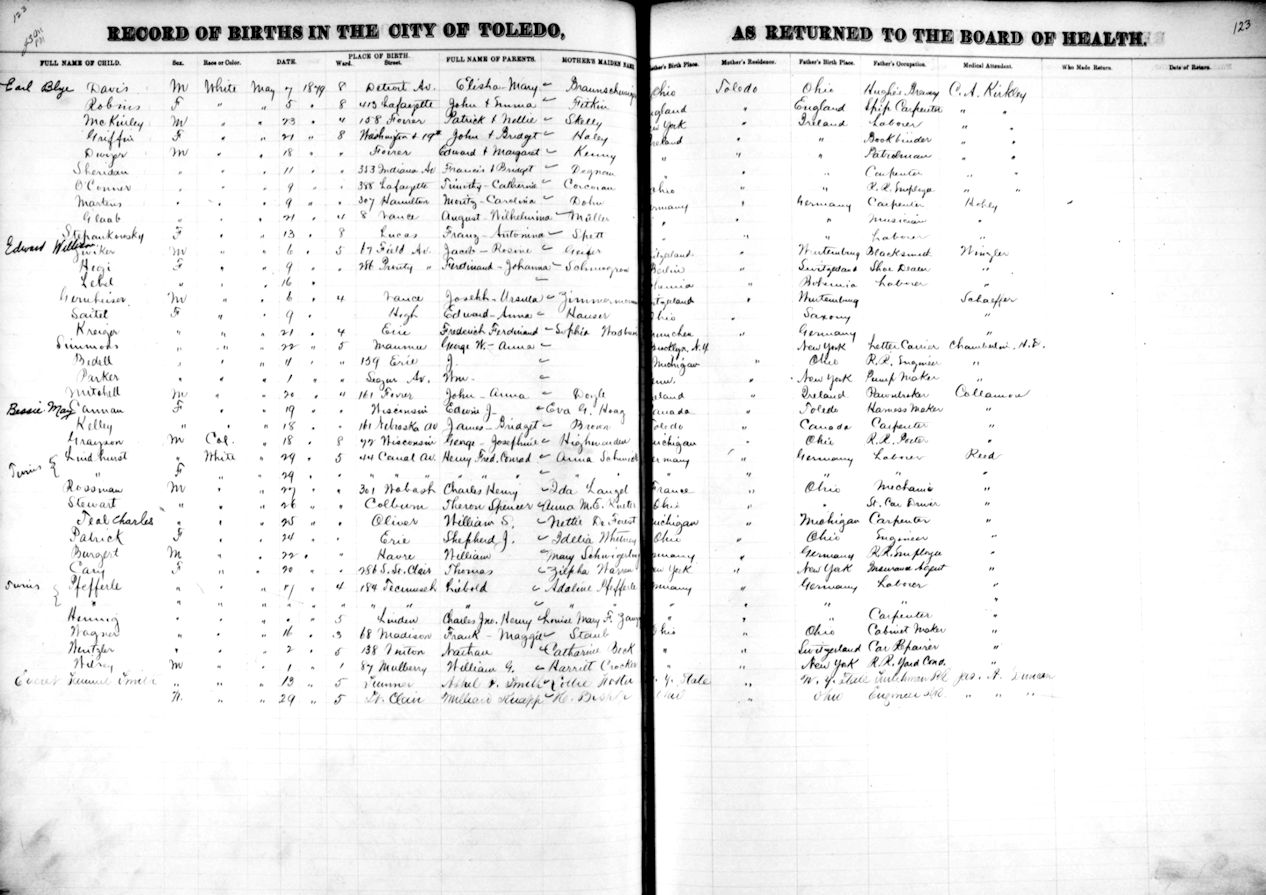 123
RECORD OF BIRTHS IN THE CITY OF TOLEDO, AS RETURNED TO THE BOARD OF HEALTH.
123
PLACE OF BIRTH.
FULL NAME OF CHILD. Sex. Race or Color. DATE. Ward. Street. FULL NAME OF PARENTS. MOTHER'S MAIDEN NAME Mother's Birth Place. Mother's Residence. Father's Birth Place. Father's Occupation. Medical Attendant. Who Made Return. Date of Return.
Earl Blye Davis M White May 7 1879 8 Detroit Av. Elisha - Mary Ohio Toledo Ohio C. A. Kirkley
Robins F " " 5 " 8 413 Lafayette John & Emma England " England Ship Carpenter " "
McKinley M " " 23 " " 158 Patrick & Nellie Skelly New York " Ireland Laborer " "
Griffin F " " 21 " 8 Washington & 19th John & Bridget Haley Ireland " " Bookbinder " "
Dwyer M " " 18 " " Edward & Margaret Kenny " " " Patrolman " "
Sheridan " " " 11 " " 353 Indiana Av Francis & Bridget Degnan " " " Carpenter " "
O'Conner " " " 9 " " 388 Lafayette Timothy - Catherine Corcoran Ohio " " R. R. Employe " "
Martens " " " 9 " " 307 Hamilton Moritz - Carolina Dohn Germany " Germany Carpenter
Glaab " " " 21 " 4 8 Vance August - Wilhelmina Müller " " " Musician "
Stepankowsky F " " 13 " 8 Lucas Franz - Antonina Spett " " " Laborer "
Edward William Zwiker M " " 6 " 5 67 Field Av. Jacob - Rosine Switzerland " Wurtemburg Blacksmith
Hegi F " " 9 " " 286 " Ferdinand - Johanna Berlin " Switzerland Shoe Dealer "
" " 16 " Bohemia " Bohemia Laborer "
M " " 6 " 4 Vance Joseph - Ursula Zimmermann Switzerland " Wurtemburg Schaeffer
F " " 9 " High Edward - Anna Hauser Ohio " Saxony "
Kreiger " " " 21 " 4 Erie Frederick Ferdinand - Sophia Munchen " Germany "
Simmons " " " 22 " 5 Maumee George W. - Anna Brooklyn, N.Y. New York Letter Carrier Chamberlin, H. E.
Bedell " " " 11 " " 139 Erie J. Michigan " Ohio R. R. Engineer "
Parker " " " 1 " " Segur Av. Wm. " New York Pump Maker "
Mitchell M " " 20 " " 161 John - Anna Doyle Ireland " Ireland Pawnbroker
Bessie May Canman F " " 19 " " Wisconsin Edwin J. - Eva G. Hoag Canada " Toledo Harness Maker "
Kelley " " " 18 " " 161 Nebraska Av James - Bridget Brown Toledo " Canada Carpenter "
Grayson M Col. " 18 " 8 72 Wisconsin George - Josephine Michigan " Ohio R. R. Porter "
Twins Lindhurst " White " 29 " 5 44 Canal Av. Henry Fred. Conrad Anna Germany " Germany Laborer Reed
" F " " 29 " " " " " " " " " " " "
Rossman M " " 27 " " 301 Wabash Charles Henry Ida Langel France " Ohio Mechanic "
Stewart " " " 26 " " Colburn Theron Spencer Anna M. E. Ohio " " St. Car Driver "
Teal Charles " " " 25 " " Oliver William S. Nettie De Forest Michigan " Michigan Carpenter "
Patrick F " " 24 " " Erie Shepherd J. Idelia Whitney Ohio " Ohio Engineer "
Burgert M " " 22 " " Havre William Mary Germany " Germany R. R. Employe "
Cary F " " 20 " " 286 S. St. Clair Thomas Zilpha Warren New York " New York Insurance Agent "
Twins Pfefferle " " " 17 " 4 184 Tecumseh Liebold Adaline Pfefferle Germany " Germany Laborer "
" " " " " " " " " " " " " " "
Hennig " " " " " 5 Linden Charles Jno. Henry Louise Mary F. " " " Carpenter "
Wagner " " " 16 " 3 68 Madison Frank - Maggie Staub Ohio " Ohio Cabinet Maker "
" " " 2 " 5 138 Vinton Nathan Catharine Beck " " Switzerland Car Repairer "
M " " 1 " 1 87 Mulberry William G. Harriet Crocker " " New York R. R. Yard Cond. "
Smith " " " 13 " 5 Sumner N. Y. State " N. Y. State Jas. A. Duncan
M " " 29 " 5 St. Clair Knapp Ohio " Ohio Engineer " " "